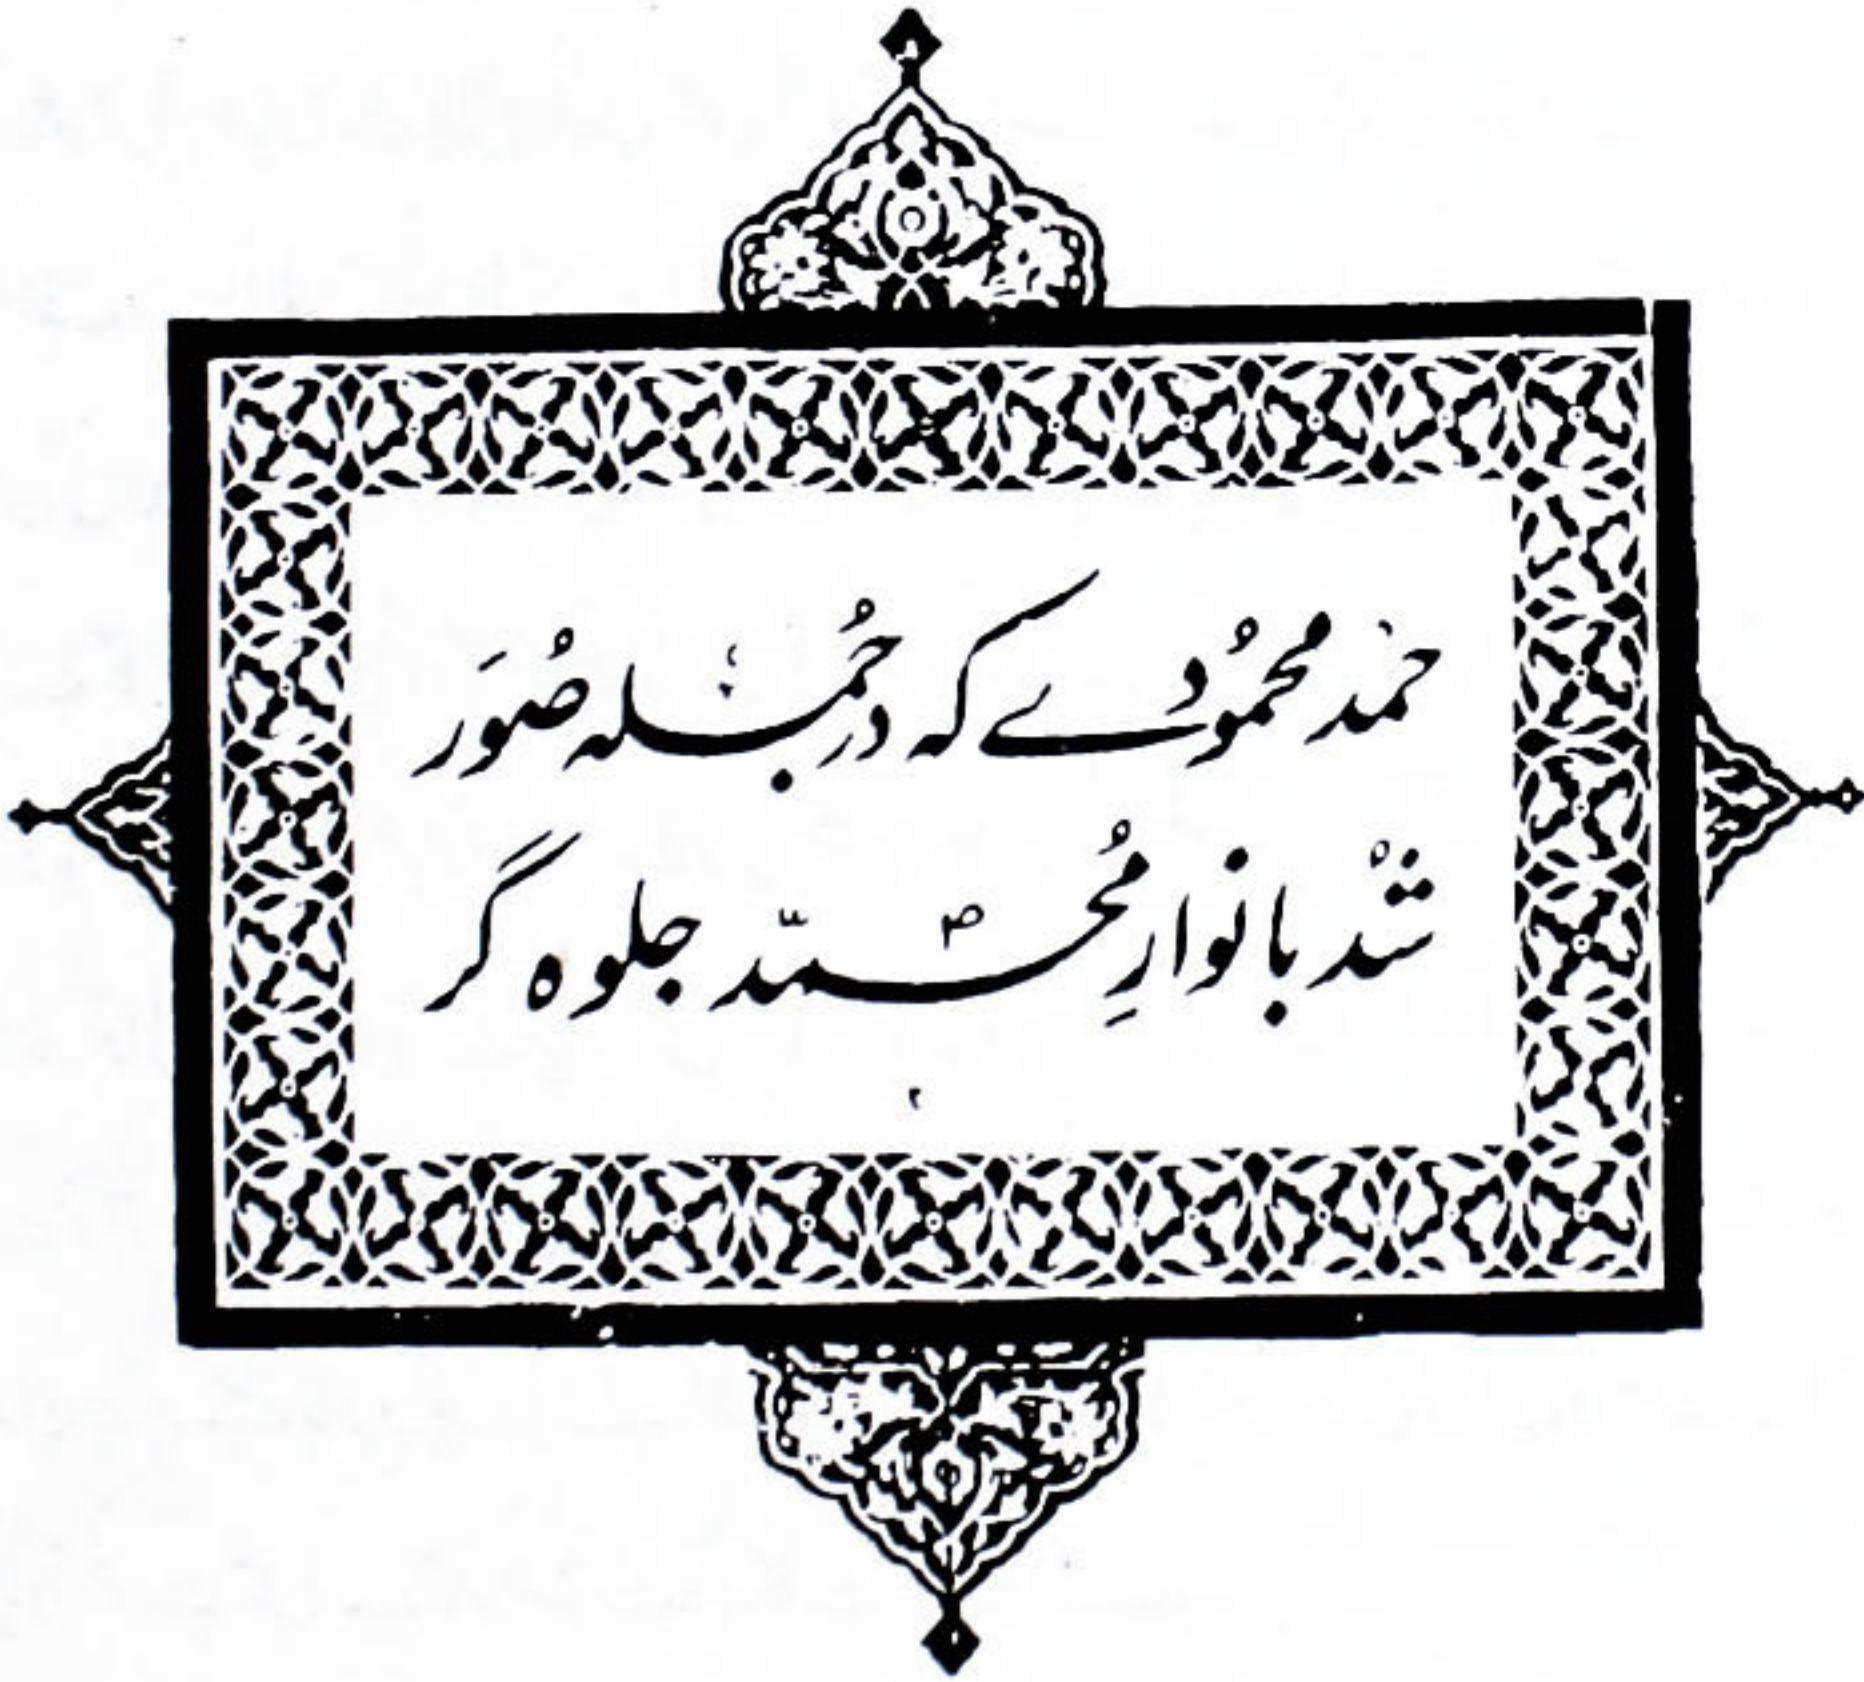 حمْد محمُودے کہ در جُملہ صُوَر
شُدْ بانوارِ مُحمّدؐ جلوہ گر